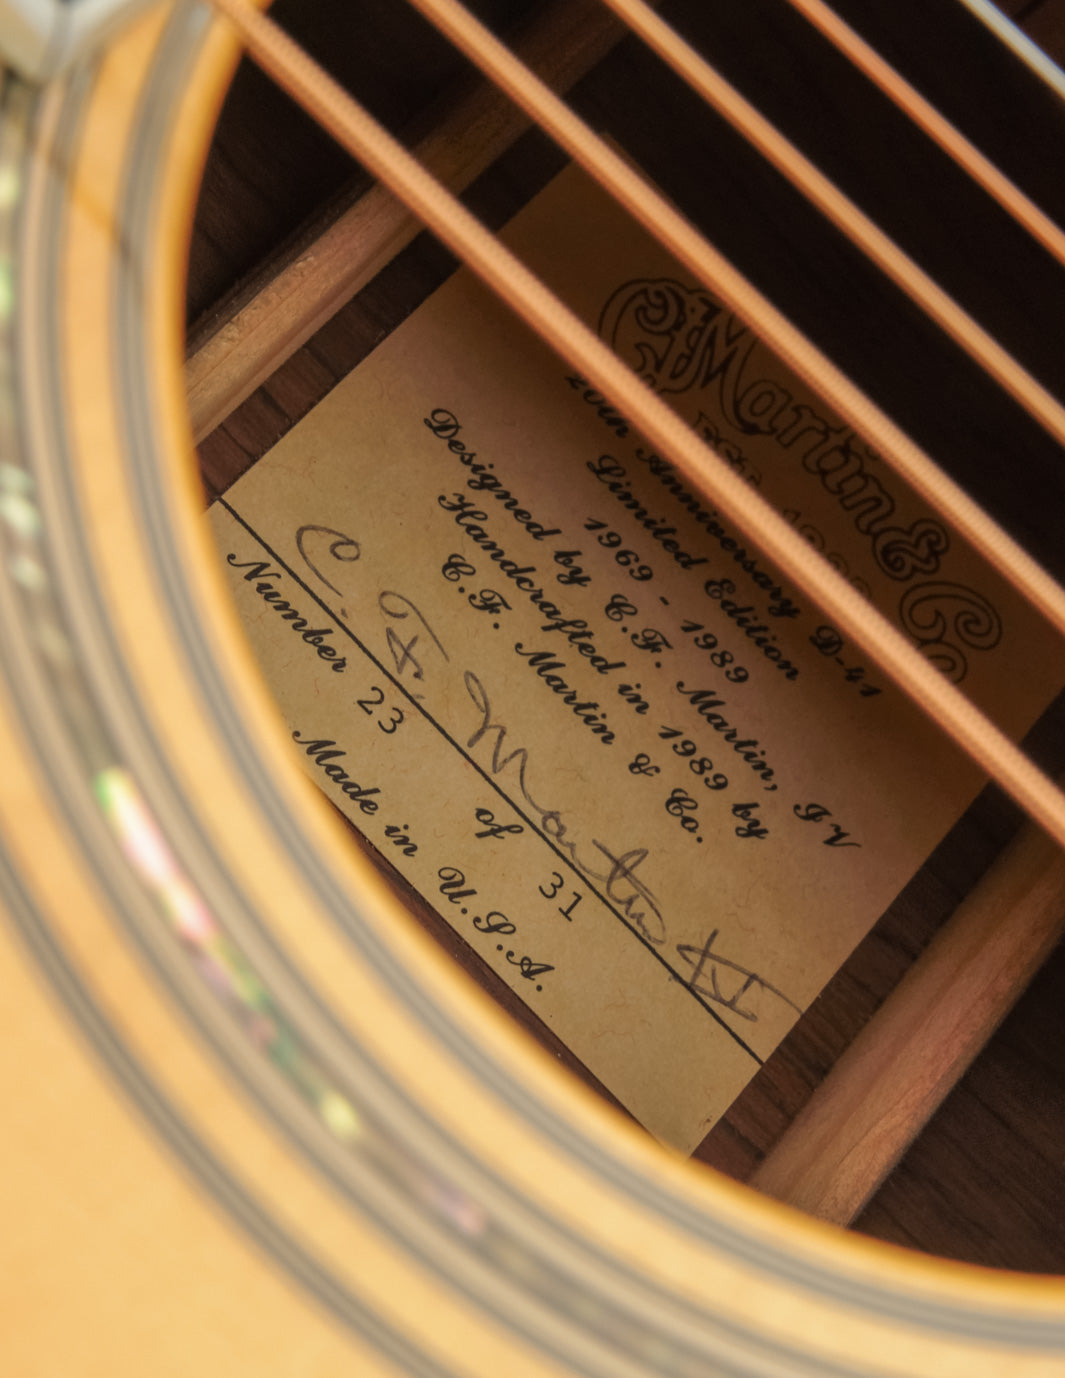 C.F. Martin & Co
EST. 1833
20th Anniversary D-41
Limited Edition
1969 - 1989
Designed by C.F. Martin, IV
Handcrafted in 1989 by
C.F. Martin & Co.
C. F. Martin IV
Number 23 of 31
Made in U.S.A.